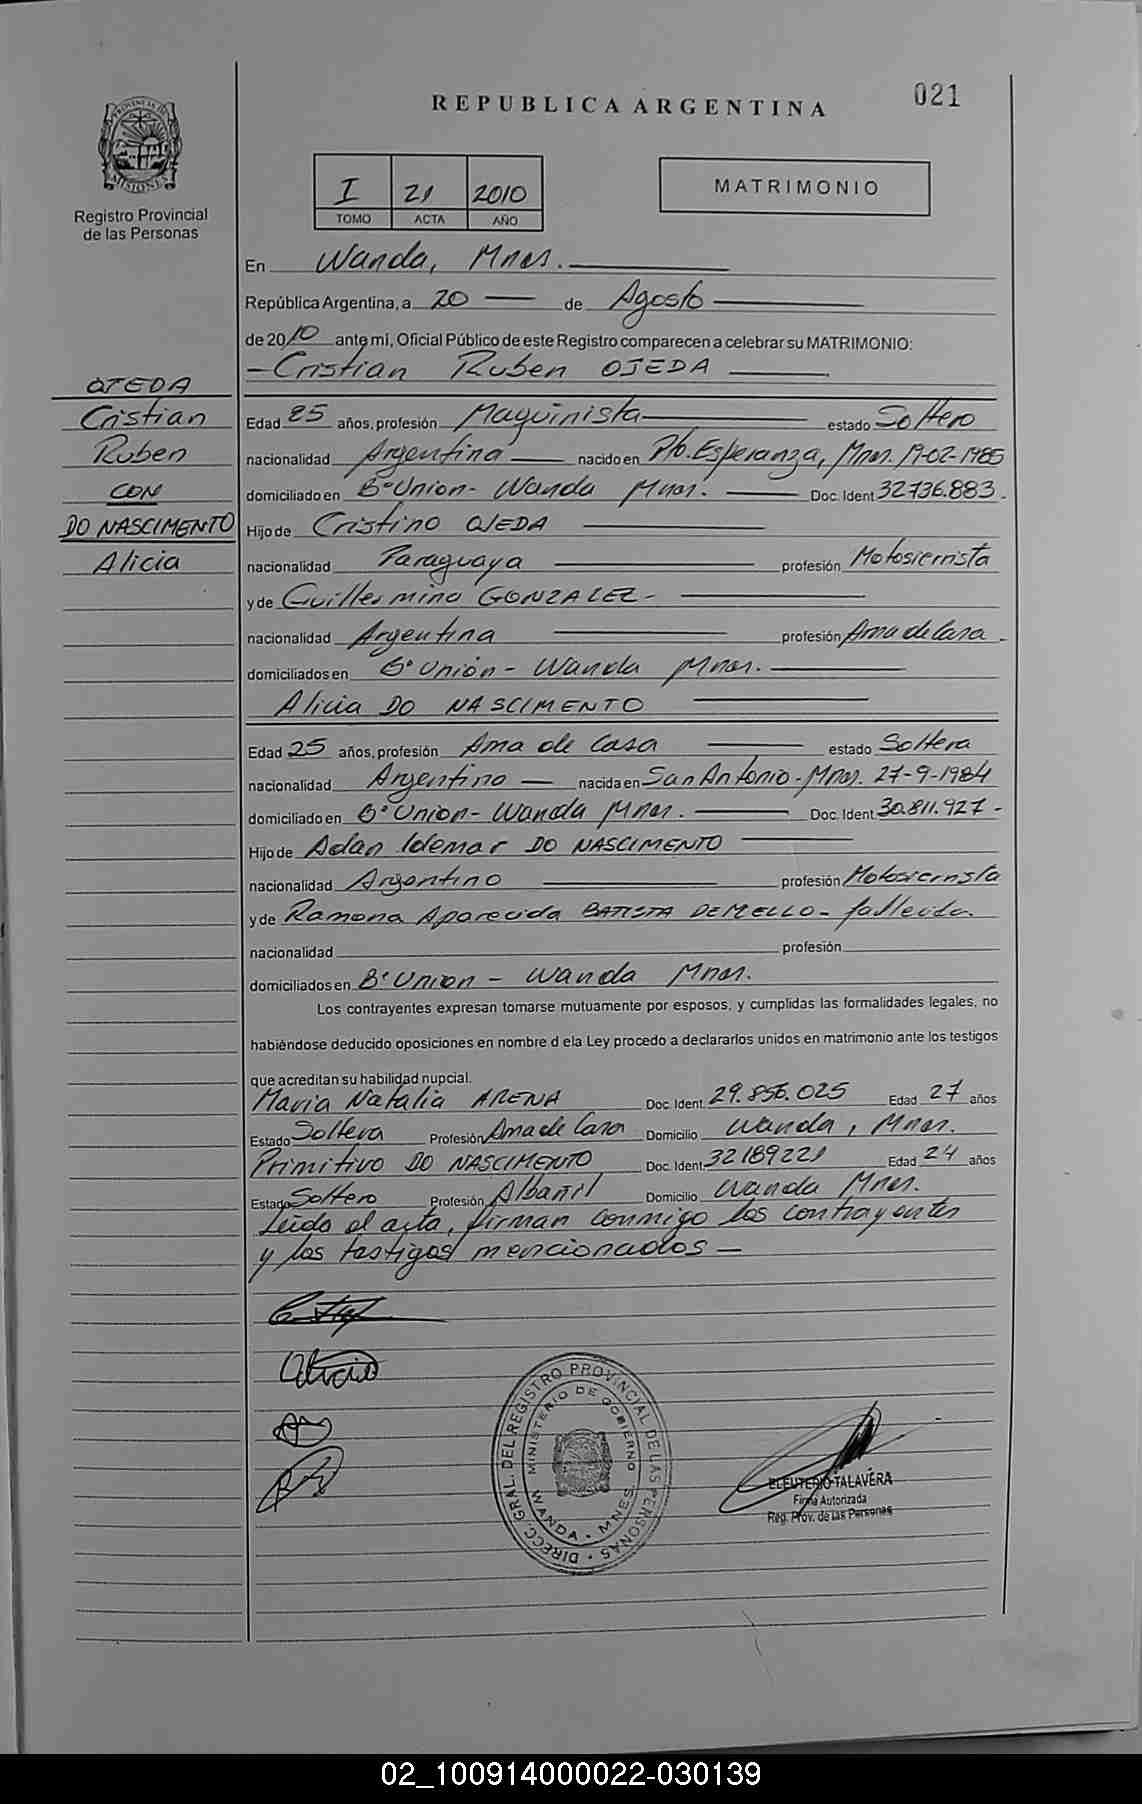 021
REPUBLICA ARGENTINA
PROVINCIA DE
MISIONES
Registro Provincial
de las Personas
I 21 2010
TOMO ACTA AÑO
MATRIMONIO
En Wanda, Mnes.
República Argentina, a 20 de Agosto
de 2010 ante mí, Oficial Público de este Registro comparecen a celebrar su MATRIMONIO:
- Cristian Ruben OJEDA
OJEDA
Cristian
Ruben
CON
DO NASCIMENTO
Alicia
Edad 25 años, profesión Maquinista estado Soltero
nacionalidad Argentina nacido en Pto. Esperanza, Mnes. 19-02-1985
domiciliado en Bº Union - Wanda Mnes. Doc. Ident 32.736.883.
Hijo de Cristino OJEDA
nacionalidad Paraguaya profesión Motosierrista
y de Guillermina GONZALEZ -
nacionalidad Argentina profesión Ama de Casa -
domiciliados en Bº Unión - Wanda Mnes.
Alicia DO NASCIMENTO
Edad 25 años, profesión Ama de Casa estado Soltera
nacionalidad Argentina nacida en San Antonio - Mnes. 27-9-1984
domiciliado en Bº Union - Wanda Mnes. Doc. Ident 30.811.927 -
Hijo de Adan Idemar DO NASCIMENTO
nacionalidad Argentino profesión Motosierrista
y de Ramona Aparecida BATISTA DE MELLO - fallecida.
nacionalidad profesión
domiciliados en Bº Union - Wanda Mnes.
Los contrayentes expresan tomarse mutuamente por esposos, y cumplidas las formalidades legales, no
habiéndose deducido oposiciones en nombre d ela Ley procedo a declararlos unidos en matrimonio ante los testigos
que acreditan su habilidad nupcial.
Maria Natalia ARENA Doc. Ident. 29.856.025 Edad 27 años
Estado Soltera Profesión Ama de Casa Domicilio Wanda, Mnes.
Primitivo DO NASCIMENTO Doc. Ident. 32189221 Edad 24 años
Estado Soltero Profesión Albañil Domicilio Wanda Mnes.
Leido el acta, firman conmigo los contrayentes
y los testigos mencionados -
Alicia
DIRECC. GRAL. DEL REGISTRO PROVINCIAL DE LAS PERSONAS
MINISTERIO DE GOBIERNO
WANDA - MNES.
ELEUTERIO TALAVERA
Firma Autorizada
Reg. Prov. de las Personas
02_100914000022-030139